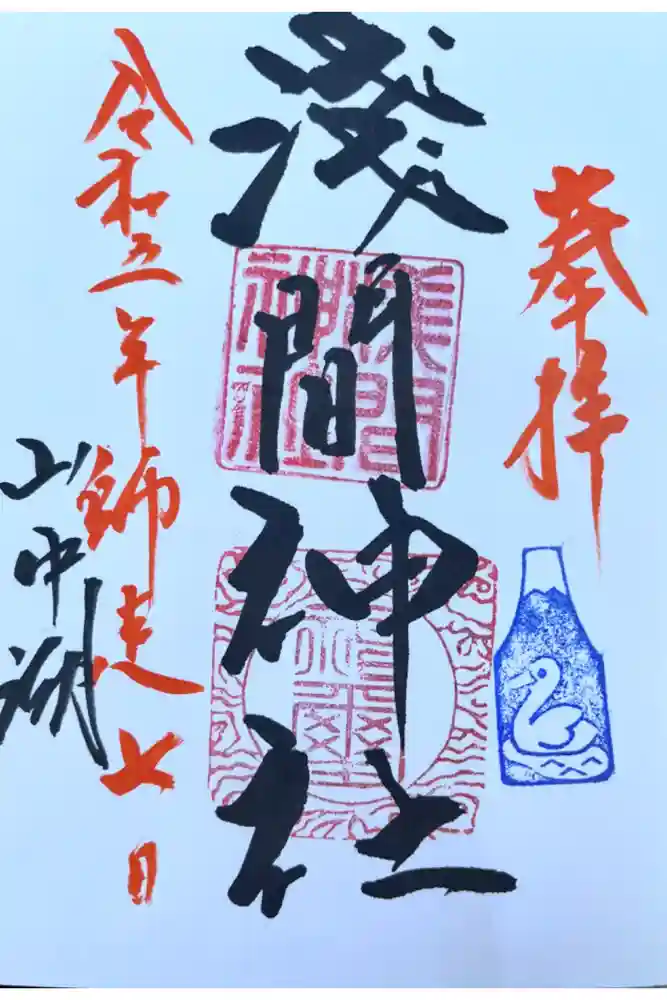 奉拝
淺間神社
令和五年師走七日
山中湖